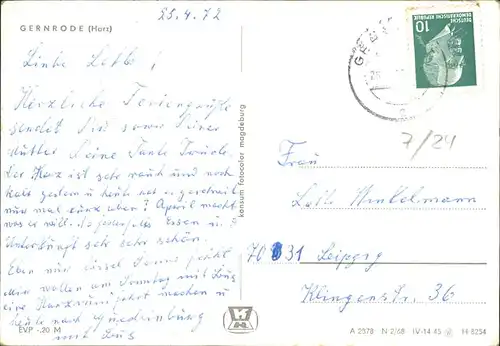 23.4.72
GERNRODE (Harz)
Liebe Lotte!
Herzliche Feriengrüße
sendet Dir sowie Deiner
Mutter Deine Tante Trude.
Der Harz ist sehr rauh und noch
kalt gestern u heute hat es geschneit
nur mal kurz aber? April macht
was er will. Essen u.
Unterkunft sehr sehr schön.
Eben nur bissel Sonne fehlt
wir wollen am Sonntag mit Bus
eine Harzrundfahrt machen u
heute nach Quedlinburg
mit Bus
konsum fotocolor magdeburg
DEUTSCHE
DEMOKRATISCHE REPUBLIK
10
7/24
Frau
Lotte Winkelmann
7031 Leipzig
Klingenstr. 36
EVP -,20 M
A 2578 N 2/68 IV-14-45 H 8254